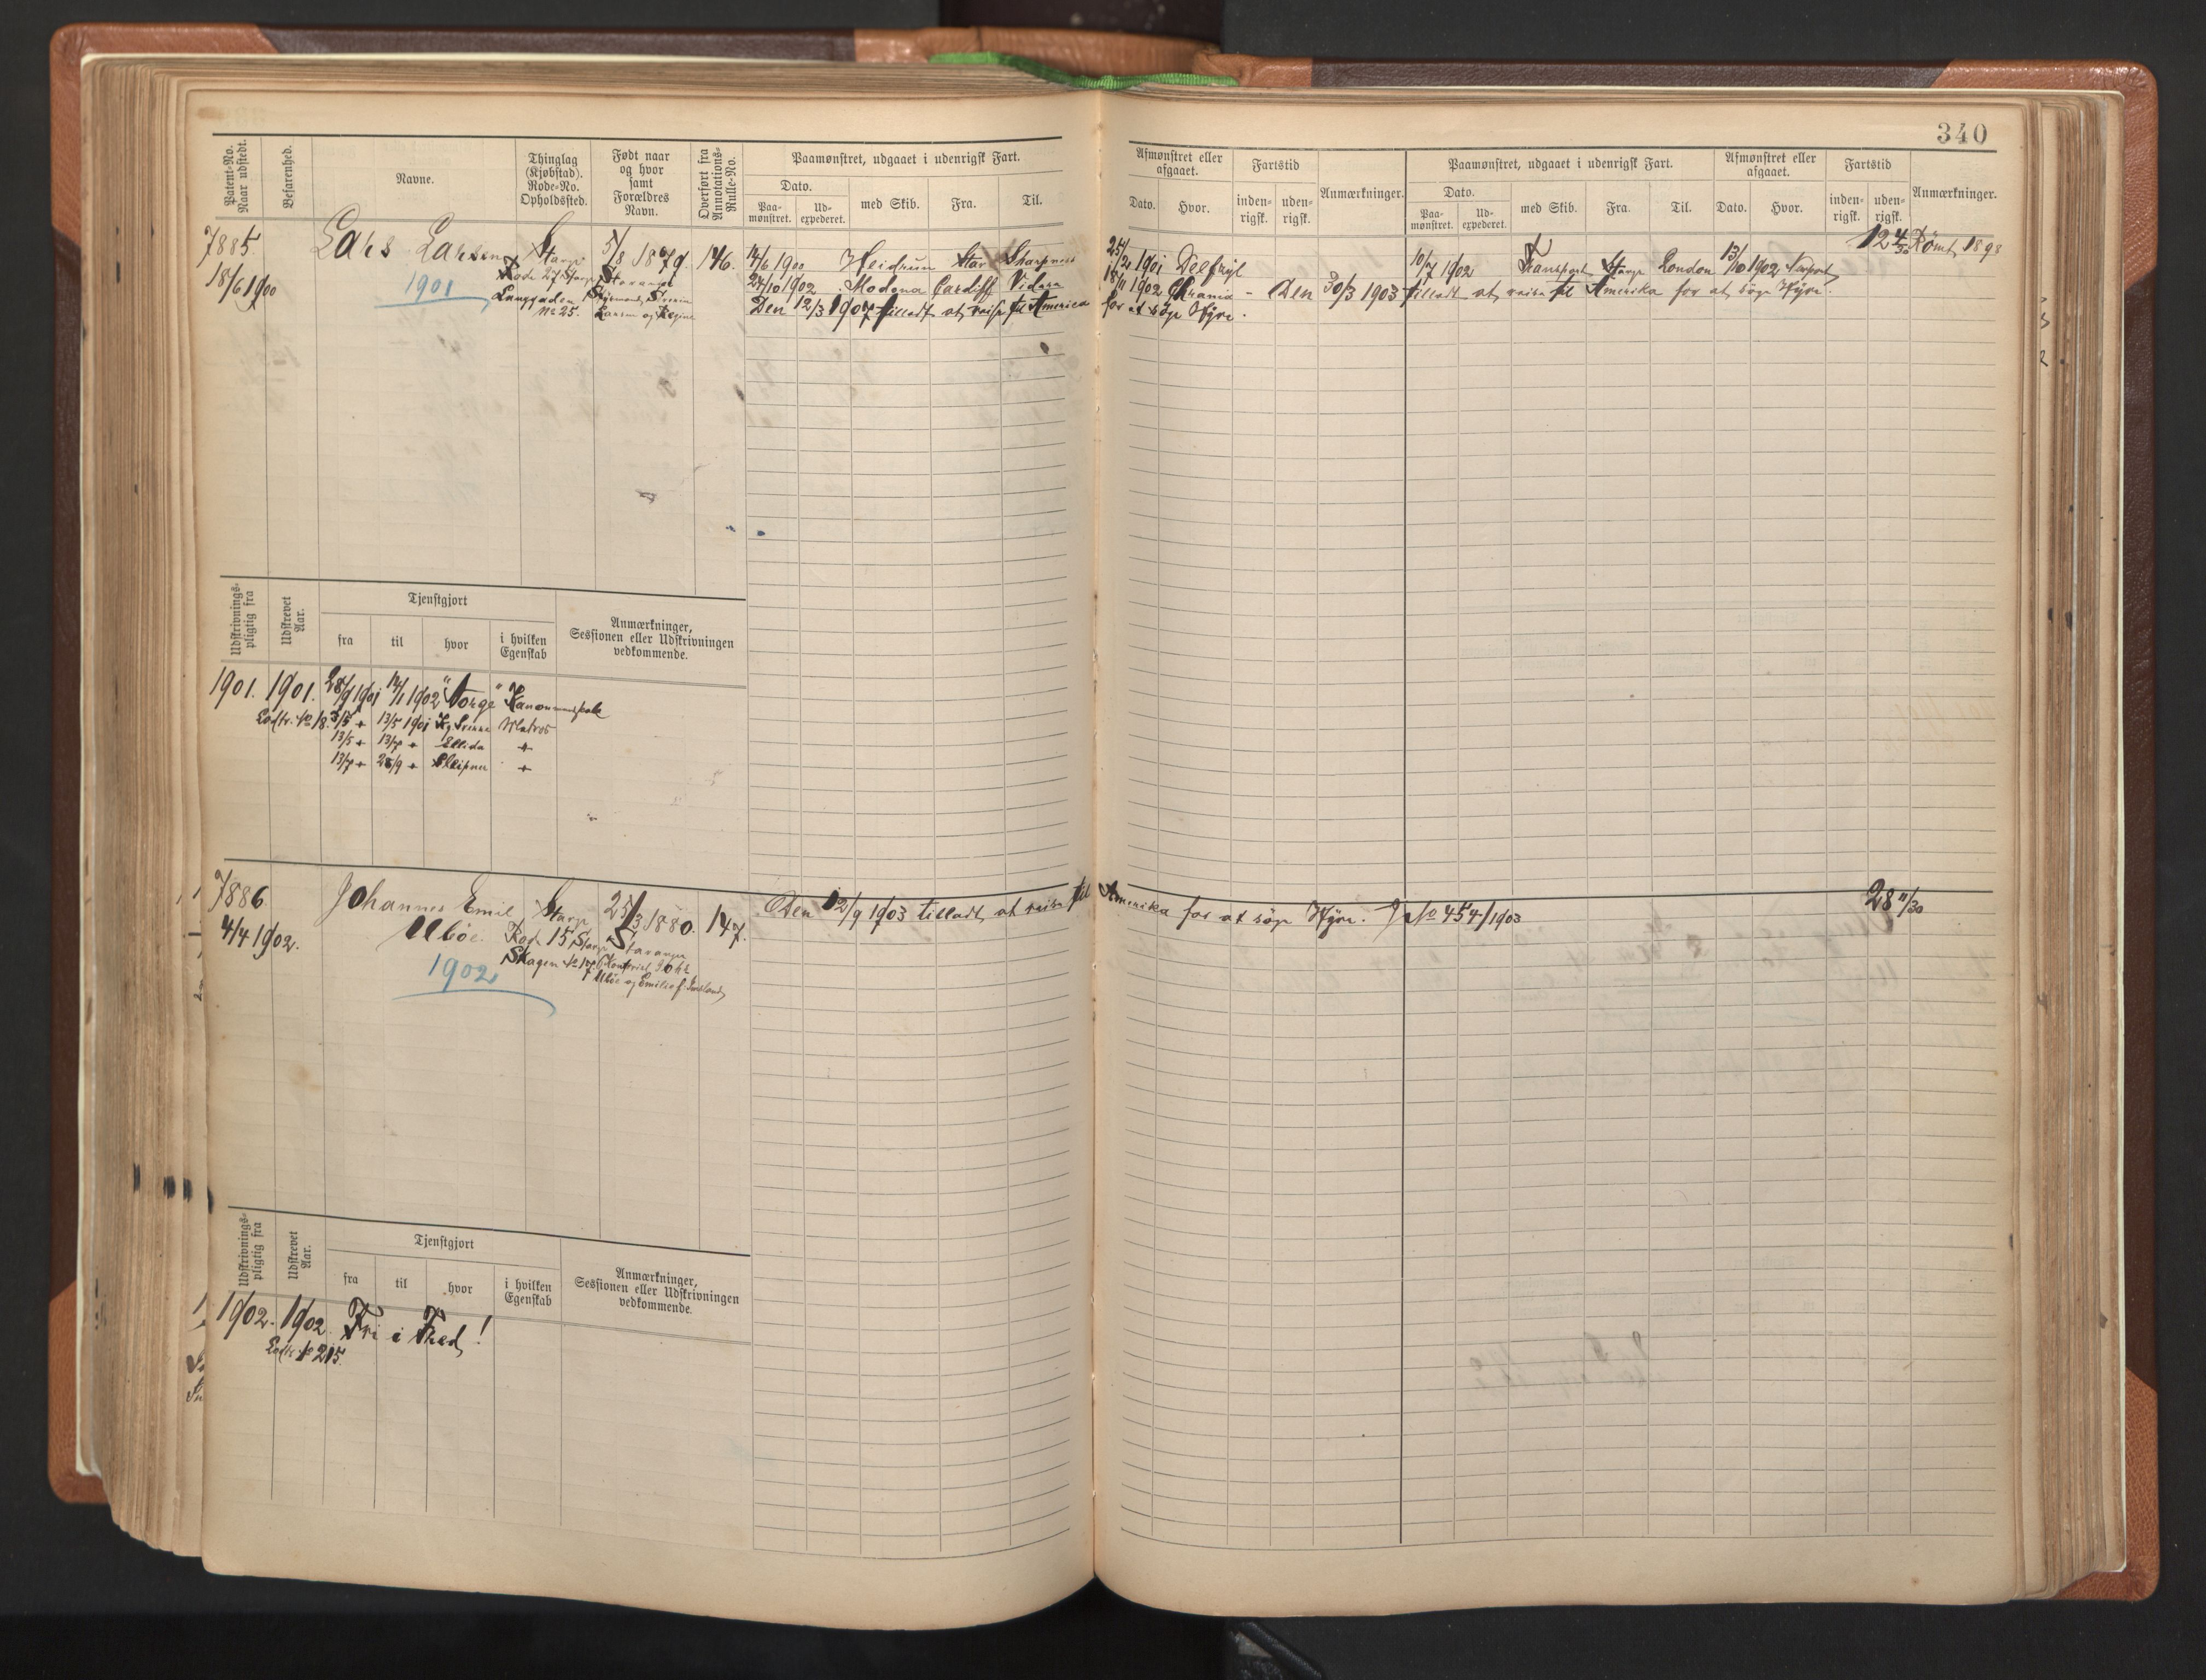 340
Patent-No. Naar udstedt.
Befarenhed.
Navne.
Thinglag (Kjøbstad). Rode-No. Opholdssted.
Født naar og hvor samt Forældres Navn.
Overført fra Annotations-Rulle-No.
Paamønstret, udgaaet i udenrigsk Fart.
Dato.
Paa-mønstret.
Ud-expederet.
med Skib.
Fra.
Til.
Afmønstret eller afgaaet.
Dato.
Hvor.
Fartstid
inden-rigsk.
uden-rigsk.
Anmærkninger.
Paamønstret, udgaaet i udenrigsk Fart.
Dato.
Paa-mønstret.
Ud-expederet.
med Skib.
Fra.
Til.
Afmønstret eller afgaaet.
Dato.
Hvor.
Fartstid
inden-rigsk.
uden-rigsk.
Anmærkninger.
7885.
18/6 1900
Lars Larsen
1901
Stavgr
Rode 27 Stavgr
Langgaden
No 25.
5/8 1879.
Stavanger
Larsen og Regine
146.
14/6 1900 Heidrun Stav Sharpness
25/2 1901 Delfzijl
10/7 1902 Transport Stavgr London 13/10 1902 Newport
124
Römt 1898
24/10 1902 Modena Cardiff
18/11 1902 Chrania - Den 30/3 1903 tilladt at reise til Amerika for at söge Hyre.
Den 12/3 1907 tilladt at reise til Amerika for at söge Hyre.
Udskrivnings-pligtig fra
Udskrevet Aar.
Tjenstgjort
fra
til
hvor
i hvilken Egenskab
Anmærkninger, Sessionen eller Udskrivningen vedkommende.
1901. 1901. 28/9 1901 14/11 1902 "Norge" Kanonmandskole
Lodtr. No 18. 13/5 1901 Matros
13/5 " 13/7 " Ellida "
13/7 " 28/9 " Sleipner "
7886.
4/4 1902.
Johannes Emil
Uböe.
1902
Stavgr
Rode 15 Stavgr
Skagen No 17
25/3 1880.
Stavanger
Uböe og Emilie f.
147.
Den 12/9 1903 tilladt at reise til Amerika for at söge Hyre. J No 454/1903
28 11/30
Udskrivnings-pligtig fra
Udskrevet Aar.
Tjenstgjort
fra
til
hvor
i hvilken Egenskab
Anmærkninger, Sessionen eller Udskrivningen vedkommende.
1902. 1902. Fri i Fred!
Lodtr. No 215.